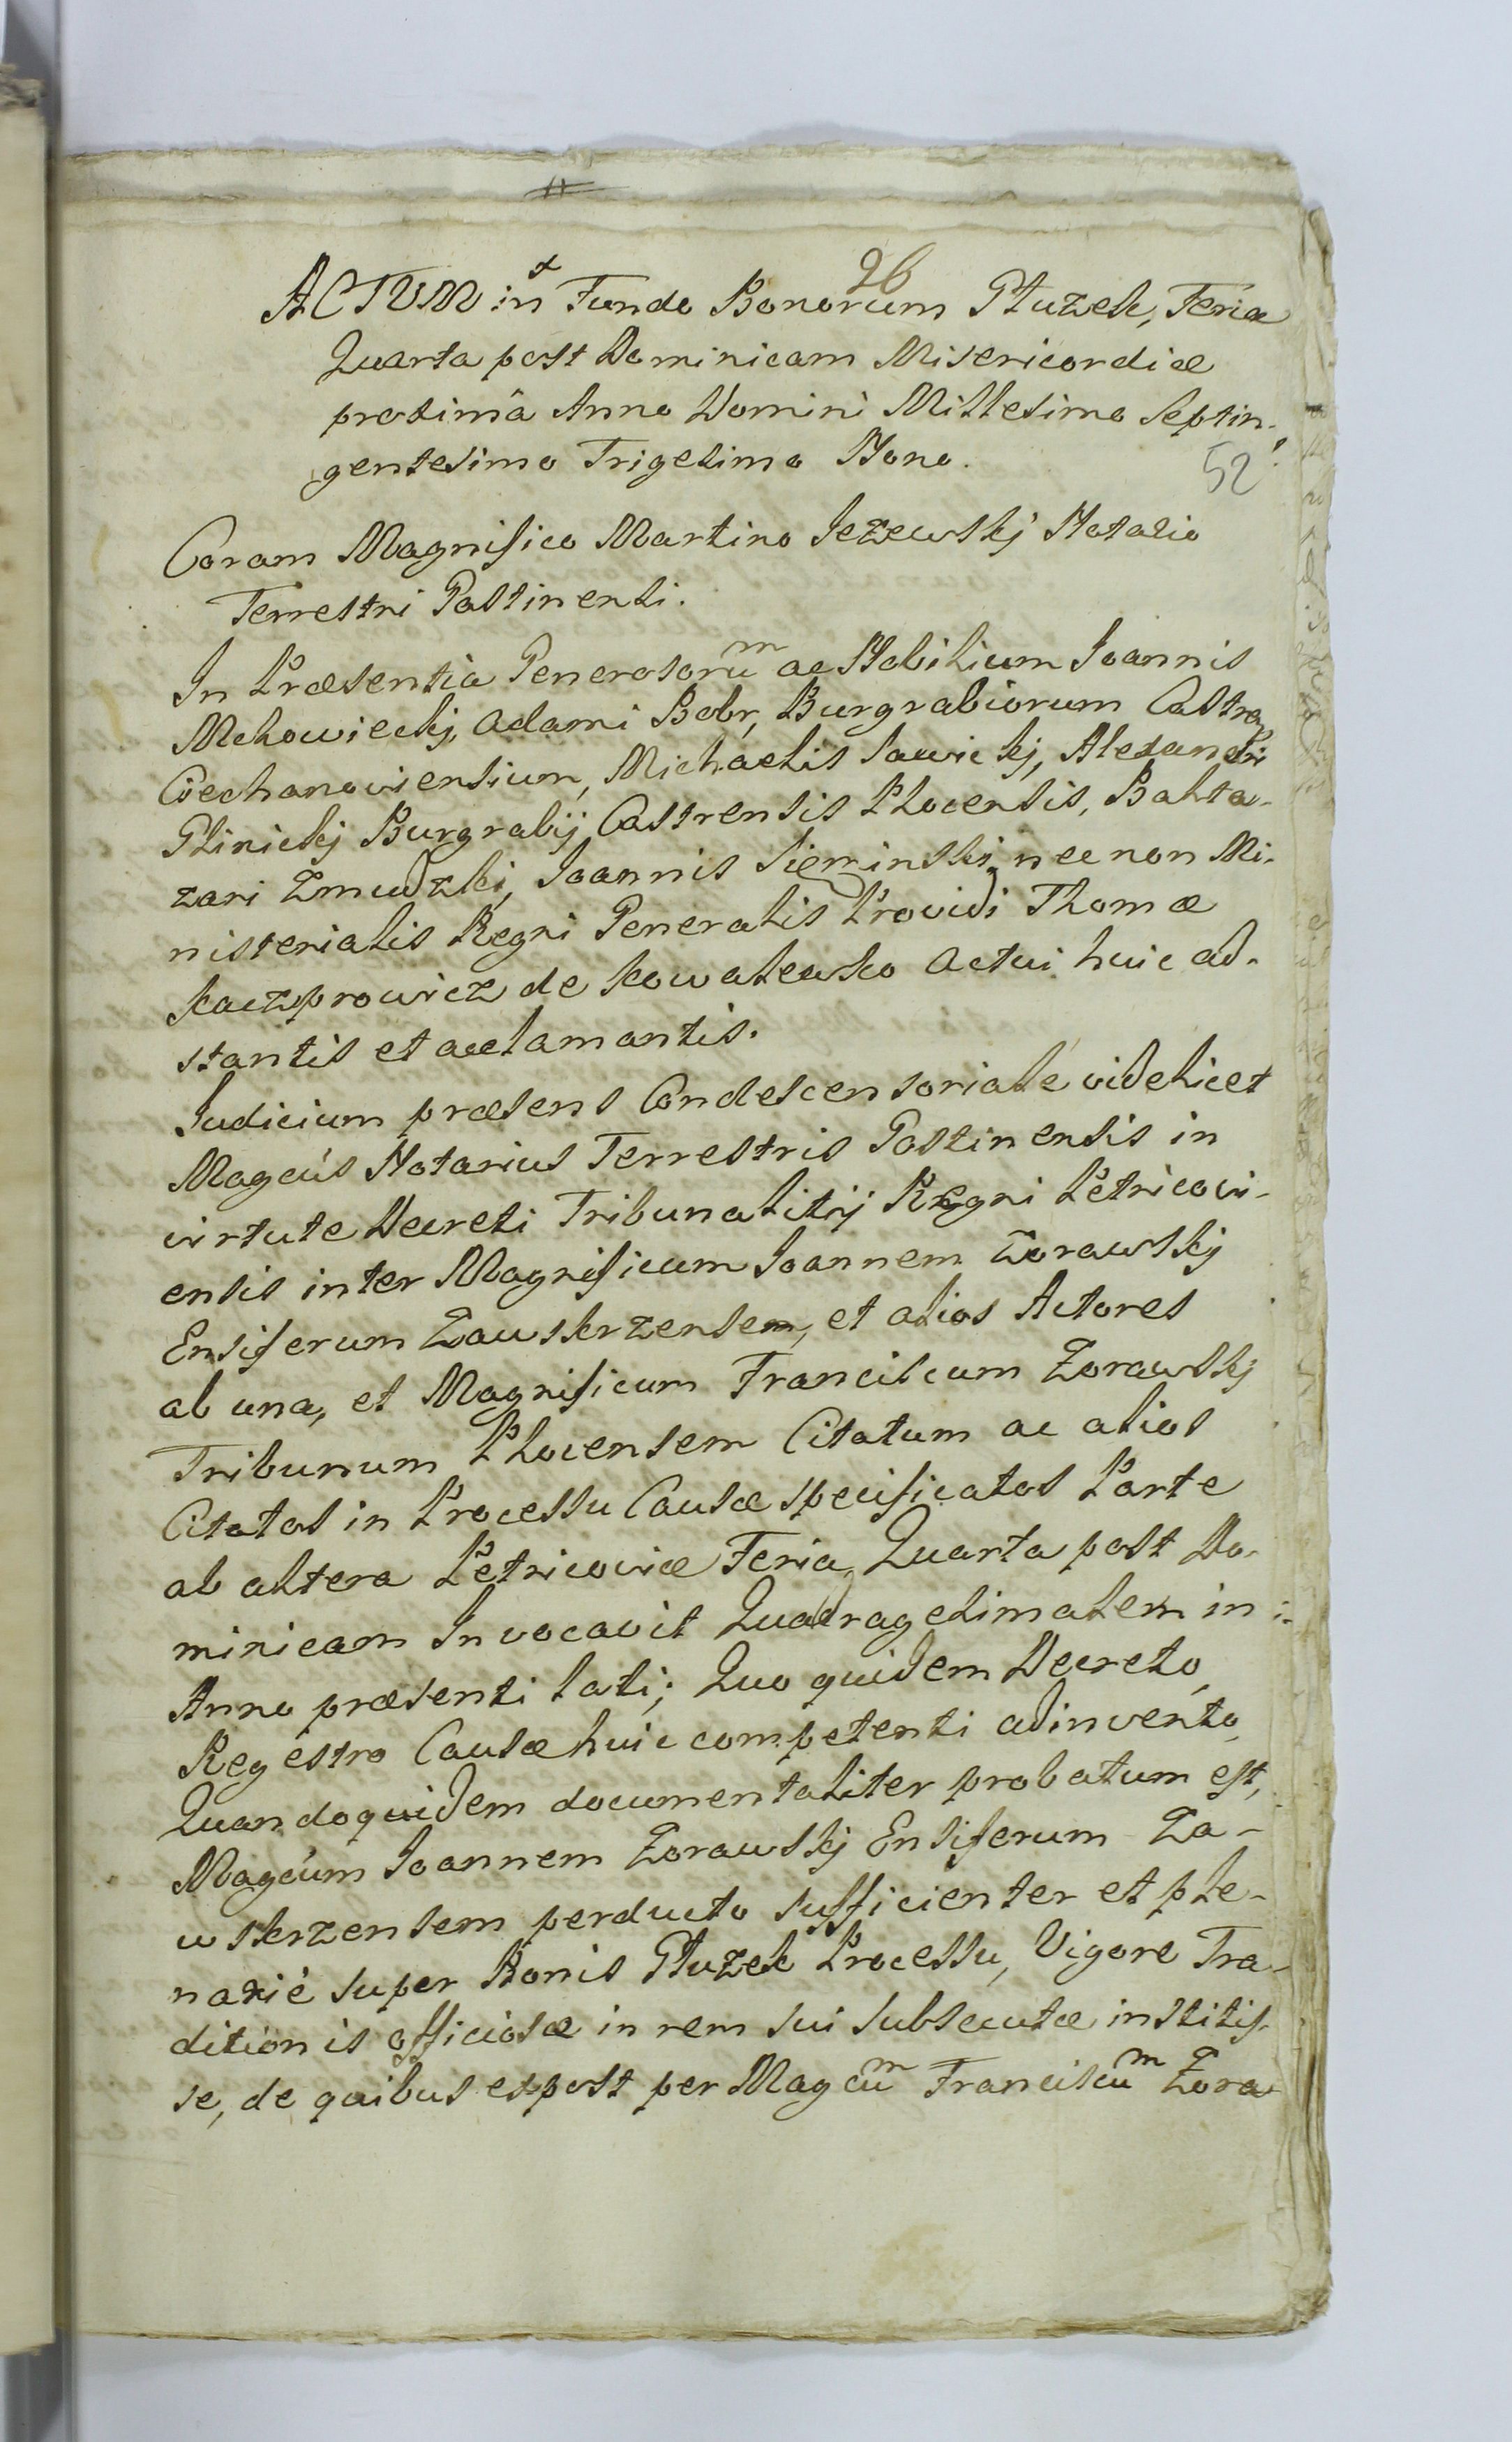 26
ACTUM in Fundo Bonorum Głuzek, Feria
Quarta post Dominicam Misericordiæ
proximâ Anno Domini Millesimo Septin-
gentesimo Trigesimo Nono.
52
Coram Magnifico Martino Jeżewskj Notario
Terrestri Gostinensi.
In Præsentia Generosorũm ac Nobilium Joannis
Mchowieckj, Adami Bobr, Burgrabiorum Castren
Ciechanoviensium, Michaelis Sawickj, Alexandri
Glinickj Burgrabij Castrensis Plocensis, Balta-
zari Zmudzki, Joannis Sieminski, nec non Mi-
nisterialis Regni Generalis Providi Thomæ
Kaczprowicz de Kowalewko Actui huic ad-
stantis et acclamantis.
Judicium præsens Condescensoriale videlicet
Magcus Notarius Terrestris Gostinensis in
virtute Decreti Tribunalitij Regni Petricovi-
ensis inter Magnificum Joannem Zorawskj
Ensiferum Zawskrzensem, et alios Actores
ab una, et Magnificum Franciscum Zorawskj
Tribunum Plocensem Citatum ac alios
Citatos in Processu Causæ specificatos Parte
ab altera Petricoviæ Feria Quarta post Do-
minicam Invocavit Quadragesimalem in
Anno præsenti lati; Quo quidem Decreto,
Regestro Causæ huic competenti adinvento,
Quandoquidem documentaliter probatum est,
Magcum Joannem Zorawskj Ensiferum Za-
wskrzensem perducto sufficienter et ple-
nariè super Bonis Głuzek Processu, Vigore Tra-
ditionis officiosæ in rem sui subsecutæ institis-
se, de quibus expost per Magcũm Franciscũm Zora-